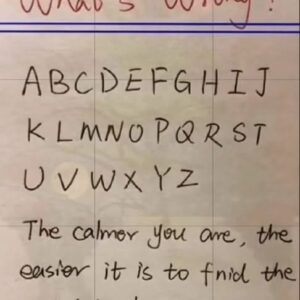 What's Wrong?
A B C D E F G H I J
K L M N O P Q R S T
U V W X Y Z
The calmer you are, the
easier it is to fnid the